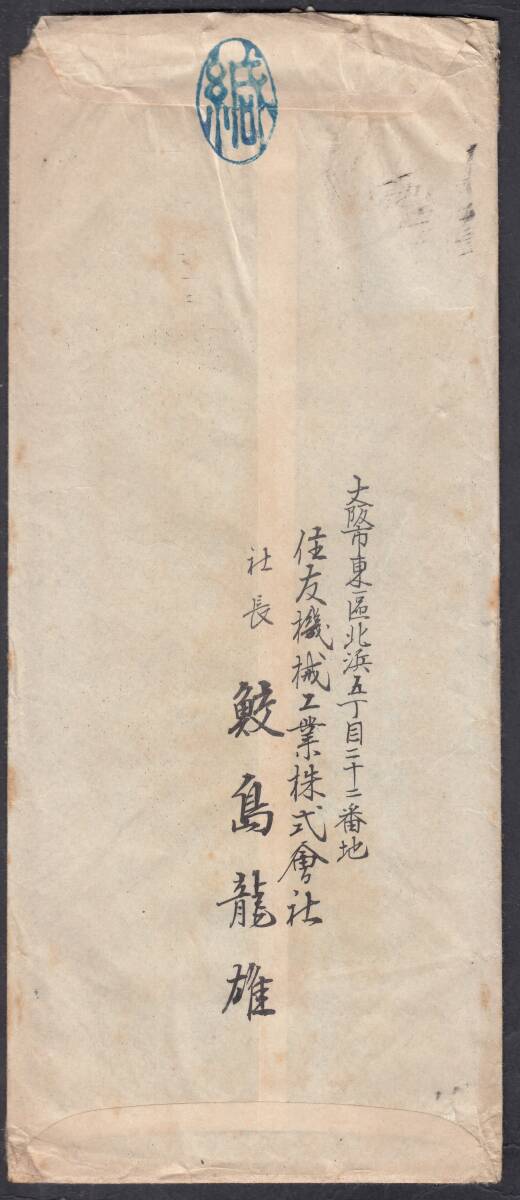 緘
大阪市東區北浜五丁目二十二番地
住友機械工業株式會社
社長 鮫島龍雄